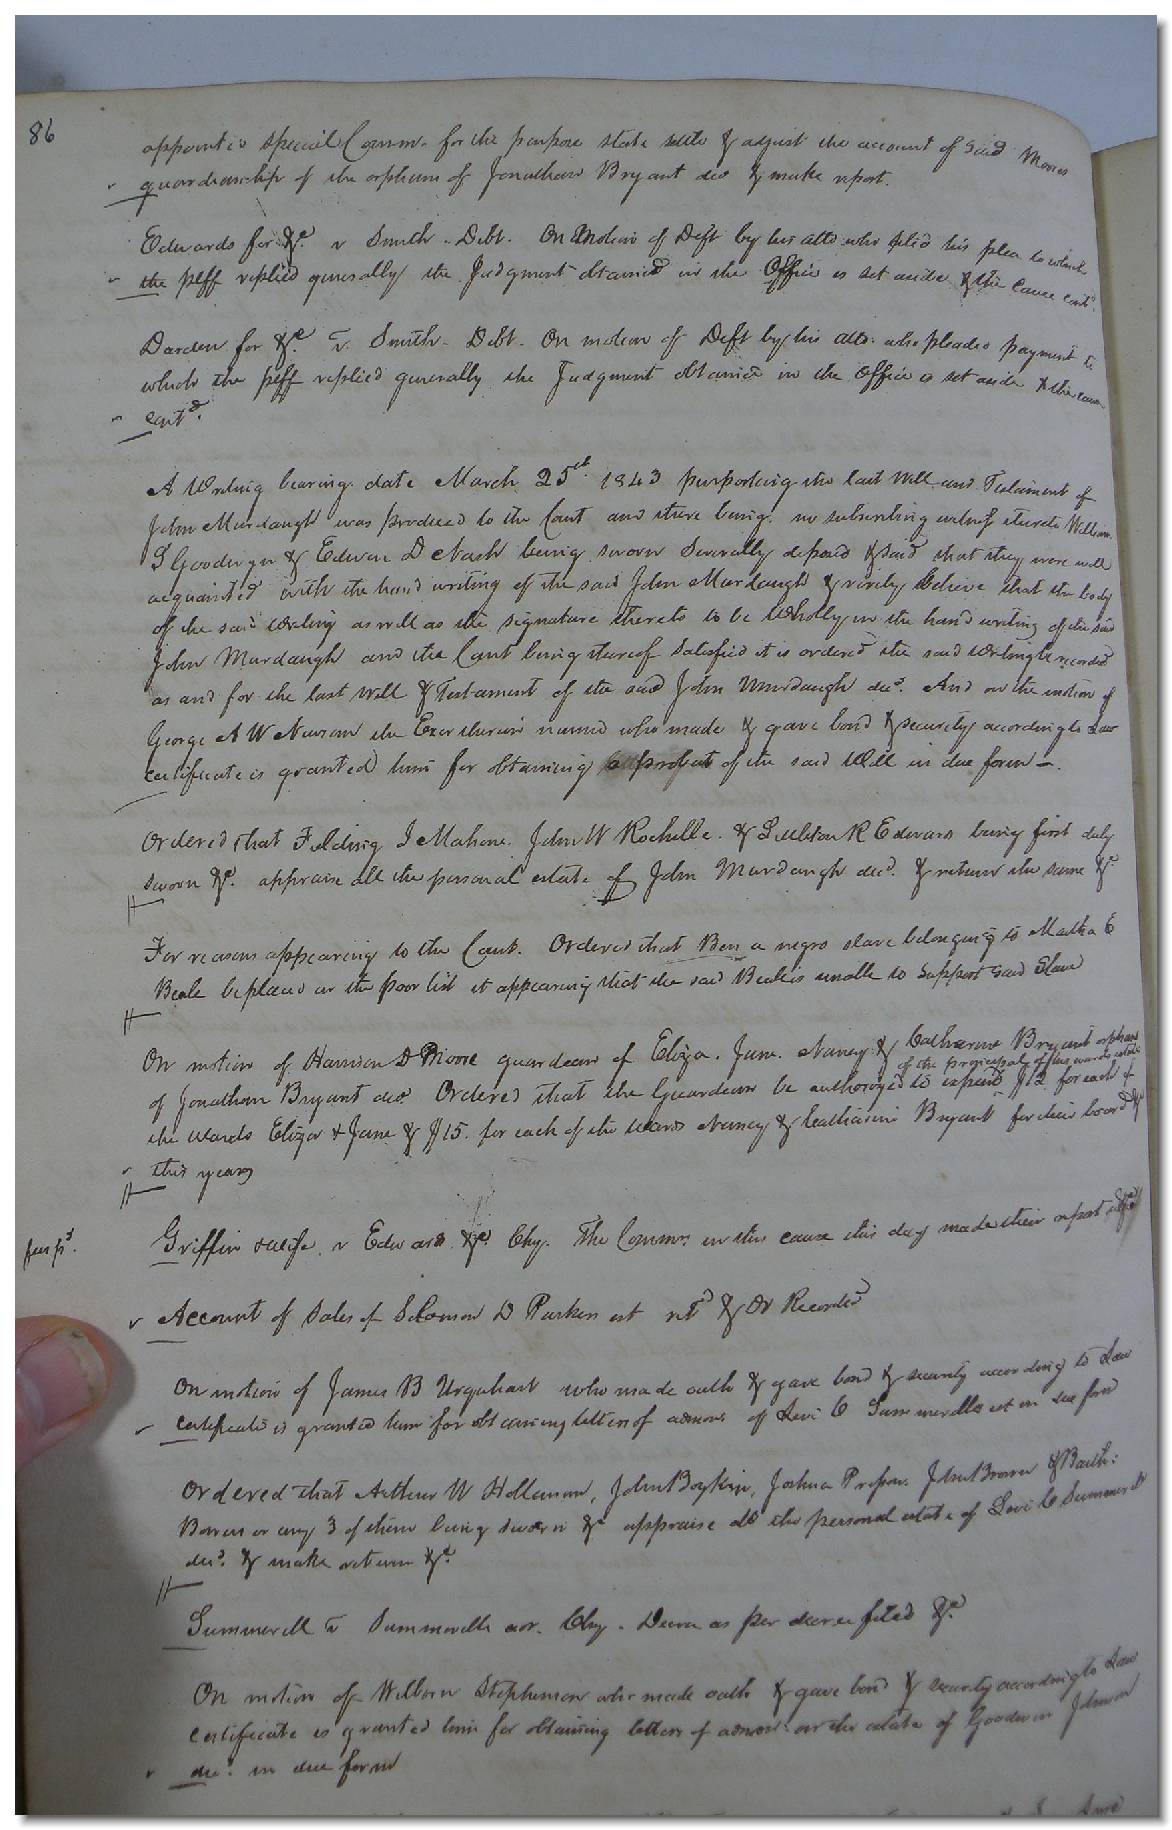 86
appointed special Comm. for the purpose state settle & adjust the account of said Moores
guardianship of the orphans of Jonathan Bryant decd & make report.
Edwards for &c. v Smith. Debt. On Motion of Deft by his atto who filed his plea to which
the plff replied generally the Judgment obtained in the Office is set aside & the cause contd.
Darden for &c. v. Smith. Debt. On motion of Deft by his atto. who pleaded payment to
which the plff replied generally the Judgment obtained in the Office is set aside & the cause
contd.
A Writing bearing date March 25th 1843 purporting the last Will and Testament of
John Murdaugh was produced to the Court and there being no subscribing witness thereto William
S Goodwyn & Edwin D Nash being sworn Severally deposed & said that they were well
acquainted with the hand writing of the said John Murdaugh & verily believe that the body
of the said Writing as well as the signature thereto to be Wholly in the hand writing of the said
John Murdaugh and the Court being thereof satisfied it is ordered the said Writing be recorded
as and for the last Will & Testament of the said John Murdaugh decd. And on the motion of
George A W Newsom the Exor therein named who made & gave bond & security according to Law
certificate is granted him for obtaining a probat of the said Will in due form.
Ordered that Fielding J Mahone. John W Rochelle. & Littleton R Edwards being first duly
sworn &c. appraise all the personal estate of John Murdaugh decd. & return the same &c.
For reasons appearing to the Court. Ordered that Ben a negro slave belonging to Martha E
Beale be placed on the poor list it appearing that the said Beale is unable to support said Slave
On motion of Harrison D Moore guardian of Eliza. Jane. Nancy & Catharine Bryant orphans
of the principal of his wards estate
of Jonathan Bryant decd Ordered that the Guardian be authorized to expend $12 for each of
the wards Eliza & Jane & $15. for each of the wards Nancy & Catharine Bryant for their board &c
this year
Griffin & wife. v Edwards &c. Chy. The Commrs in this cause this day made their report
Account of Sales of Solomon D Parkers est retd & Or Recorded
On motion of James B Urquhart who made oath & gave bond & security according to Law
certificate is granted him for obtaining letters of admon. of Levi C Summerells est in due form
Ordered that Arthur W Holleman, John Boykin, Joshua Pretlow. John Brown & Barth:
Bowers or any 3 of them being sworn &c appraise all the personal estate of Levi C Summerell
decd. & make return &c.
Summerell v Summerells adr. Chy. Decree as per decree filed &c.
On motion of Wilborn Stephenson who made oath & gave bond & security according to Law
certificate is granted him for obtaining letters of admon. on the estate of Goodwin Johnson
decd. in due form